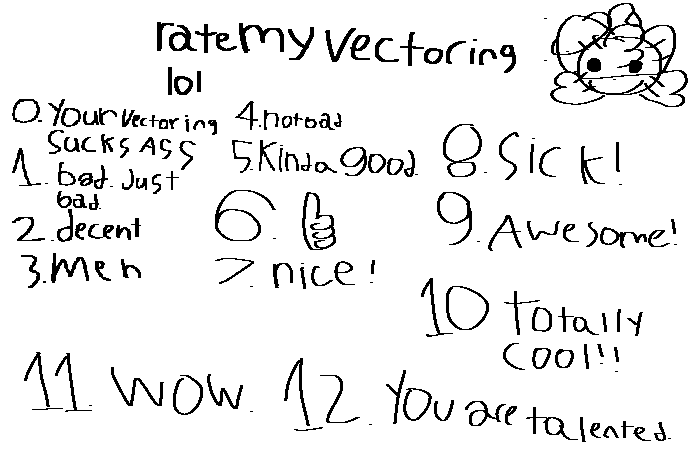 rate my vectoring
lol
0. Your vectoring
sucks ASS
1. bad. Just
bad.
2. decent
3. Meh
4. not bad
5. Kinda good.
6.
7. nice!
8. Sick!
9. Awesome!
10 totally
cool!!
11 wow.
12. You are talented.